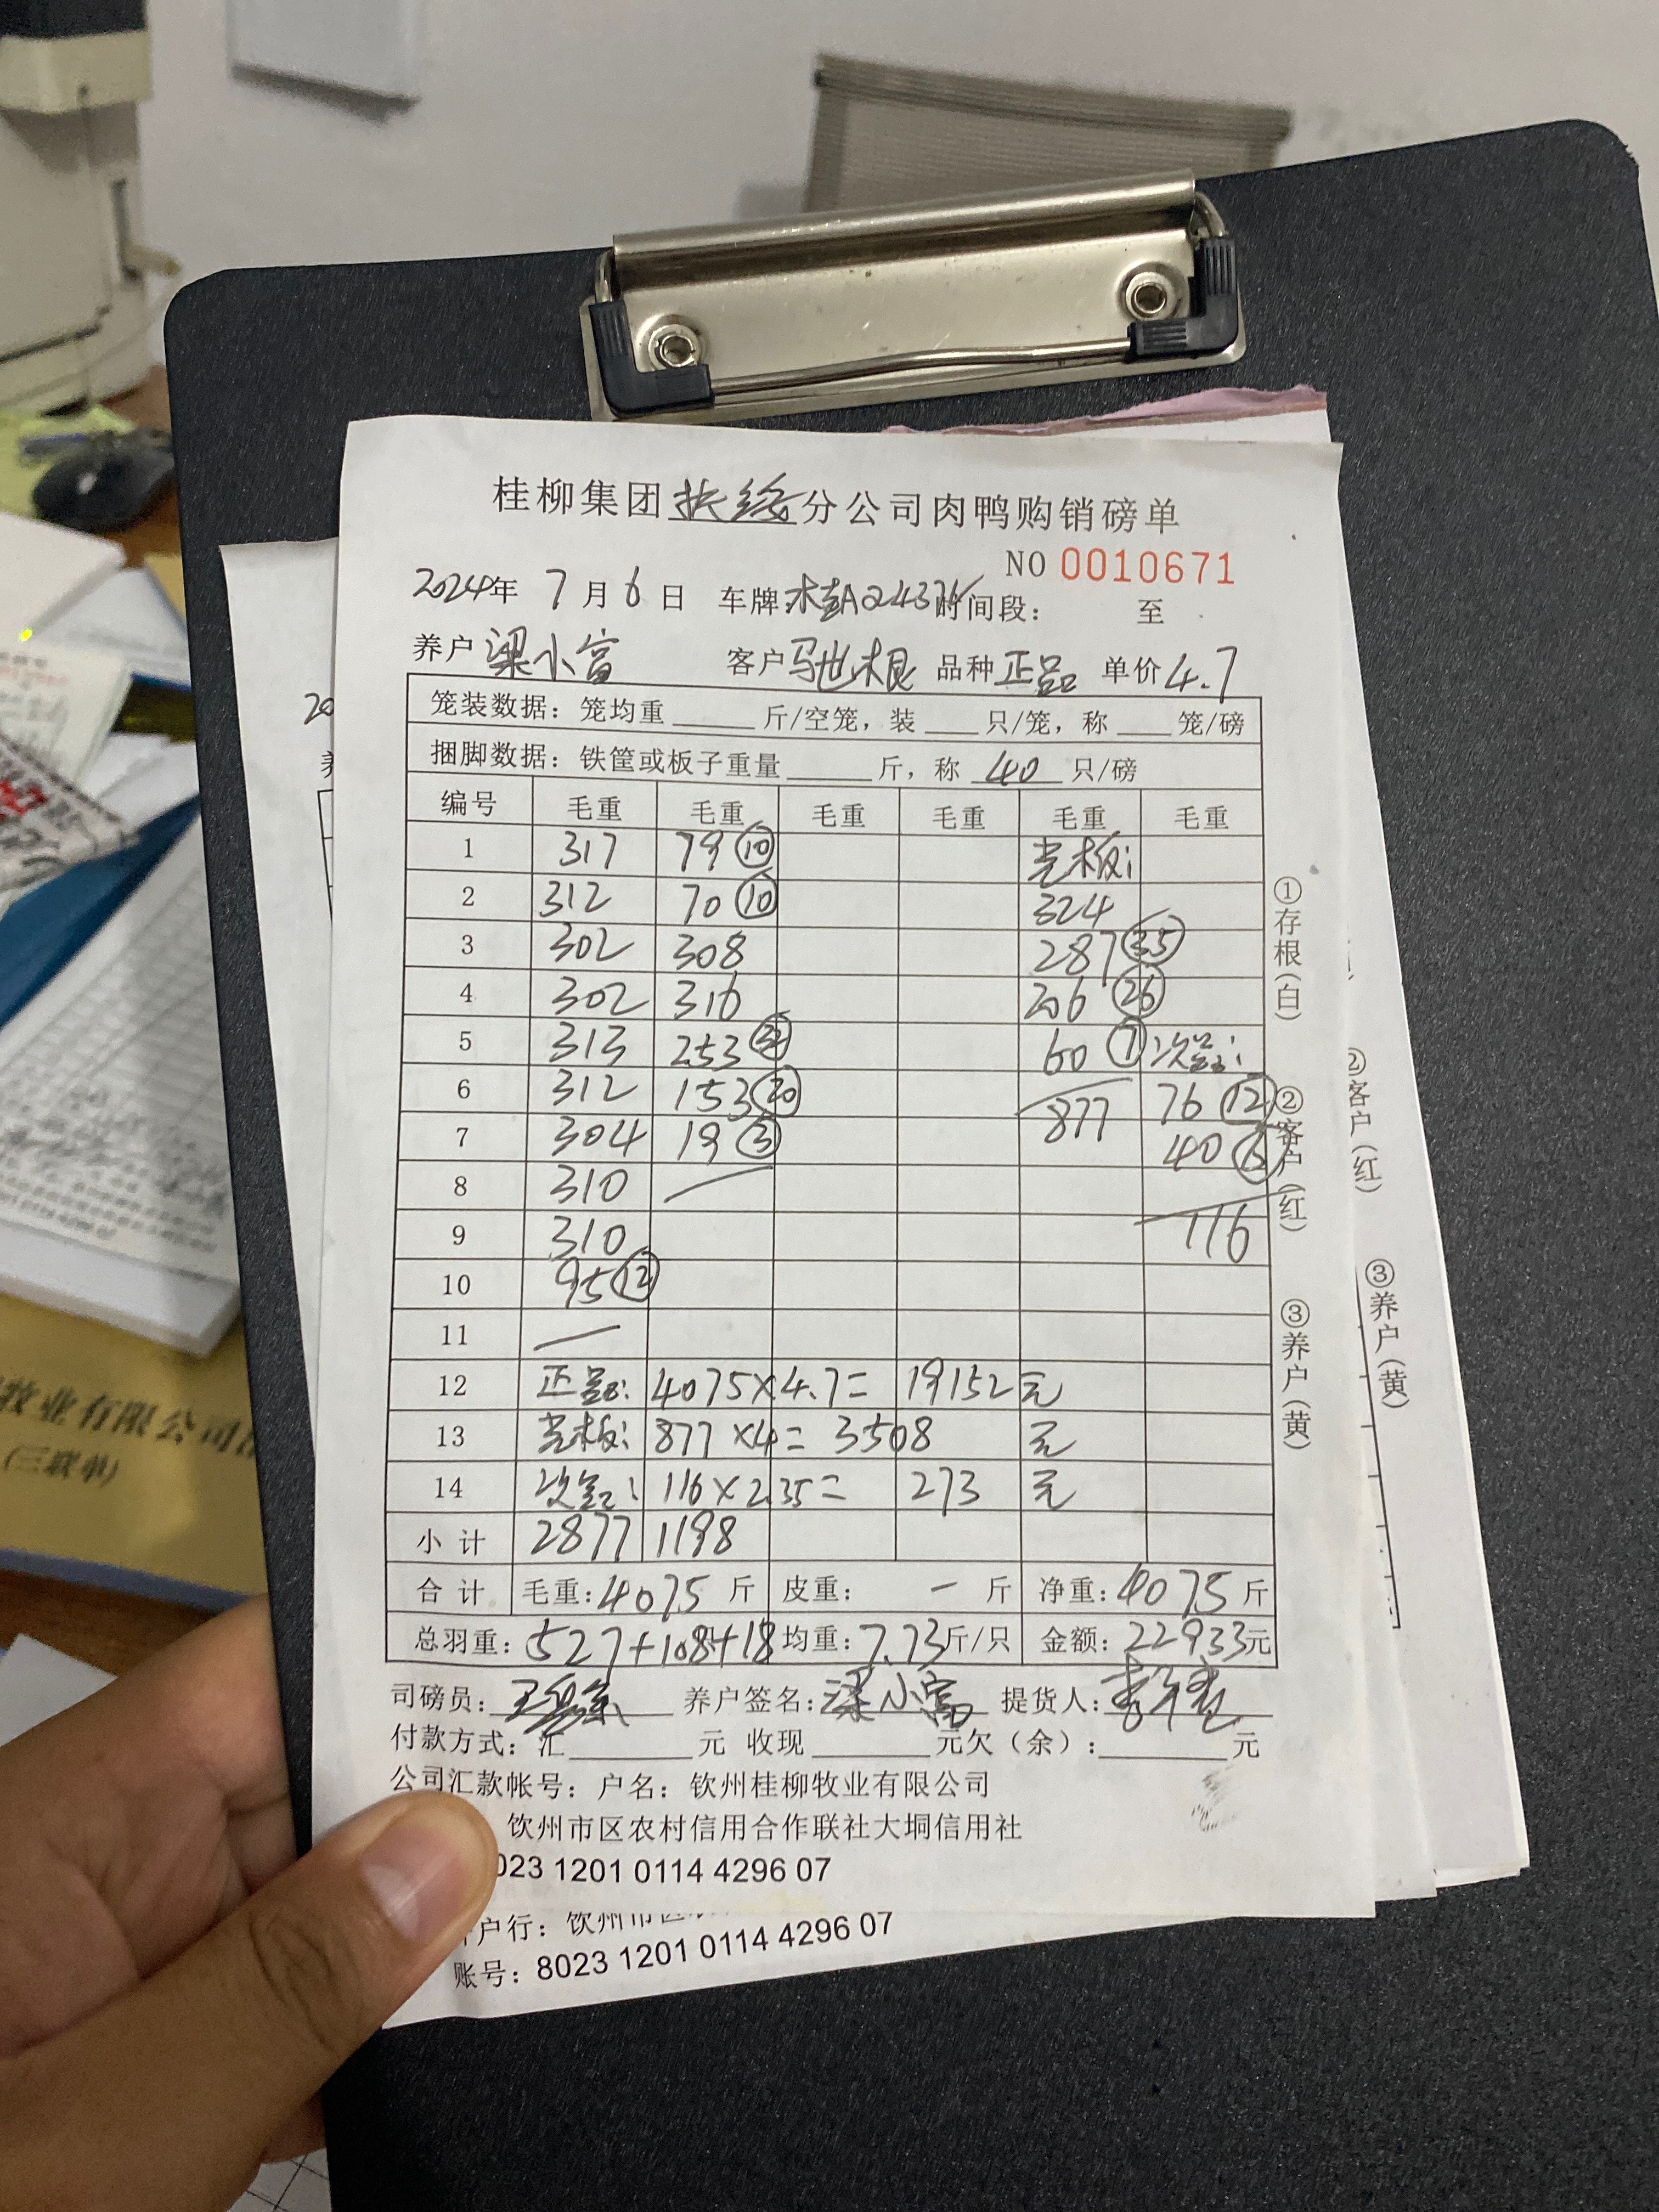 桂柳集团扶绥分公司肉鸭购销磅单
NO 0010671
2024年 7月6日 车牌: 桂A 时间段: 至
养户 梁小富 客户 品种 正品 单价 4.7
笼装数据: 笼均重 斤/空笼, 装 只/笼, 称 笼/磅
捆脚数据: 铁筐或板子重量 斤, 称 40 只/磅
编号 毛重 毛重 毛重 毛重 毛重 毛重
1 317 79 ⑩ 光板:
2 312 70 ⑩ 324
3 302 308 287 ㉟
4 302 316 206 ㉖
5 313 253 60 ⑦ 次品:
6 312 153 ⑳ 877 76 ⑫
7 304 19 ③ 40
8 310
9 310 116
10 95 ⑫
11
12 正品: 4075×4.7= 19152元
13 光板: 877×4= 3508 元
14 次品: 116×2.35= 273 元
小计 2877 1198
合计 毛重: 4075 斤 皮重: — 斤 净重: 4075 斤
总羽重: 527+108+18 均重: 7.73斤/只 金额: 22933元
司磅员: 养户签名: 梁小富 提货人:
付款方式: 汇 元 收现 元欠(余): 元
公司汇款帐号: 户名: 钦州桂柳牧业有限公司
钦州市区农村信用合作联社大垌信用社
023 1201 0114 4296 07
户行: 钦州市区
账号: 8023 1201 0114 4296 07
①存根(白)
②客户(红)
③养户(黄)
②客户(红)
③养户(黄)
20
牧业有限公司
(三联单)